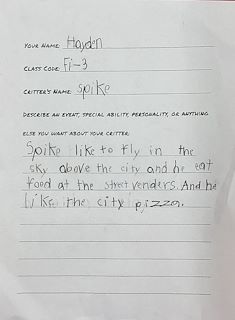 YOUR NAME: Hayden
CLASS CODE: Fi-3
CRITTER'S NAME: Spike
DESCRIBE AN EVENT, SPECIAL ABILITY, PERSONALITY, OR ANYTHING
ELSE YOU WANT ABOUT YOUR CRITTER:
Spike like to fly in the
sky above the city and he eat
food at the street venders. And he
like the city pizza.